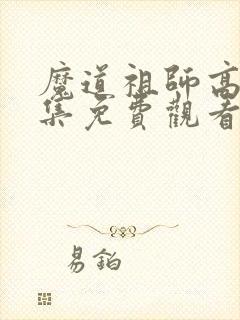 魔道祖師高
集免費觀看
易鉑